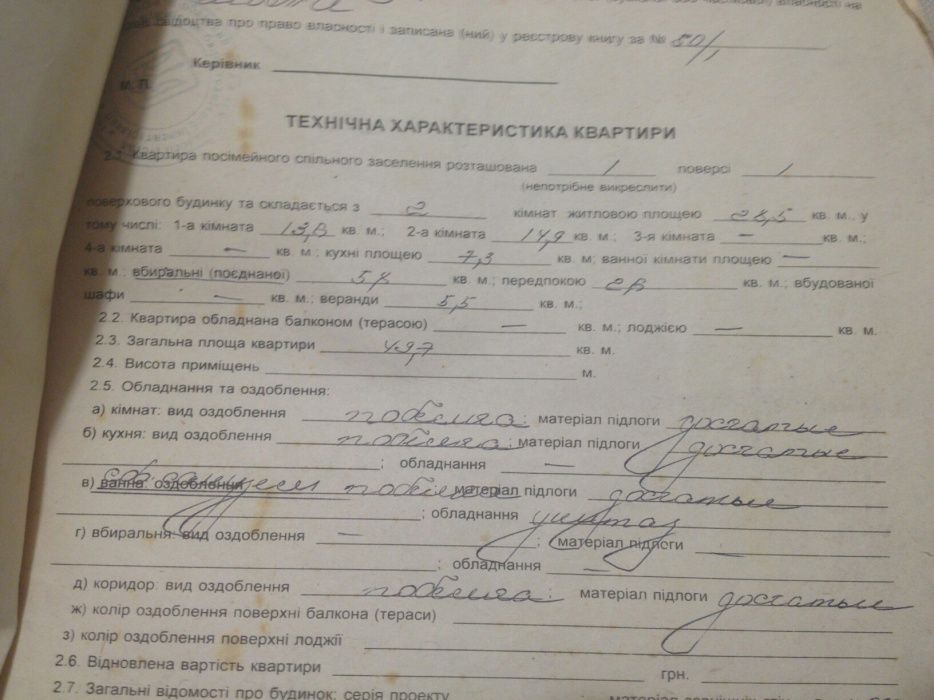 свідоцтва про право власності і записана (ний) у реєстрову книгу за №
Керівник
М. П.
ТЕХНІЧНА ХАРАКТЕРИСТИКА КВАРТИРИ
2.1. Квартира посімейного спільного заселення розташована 1 поверсі 1
(непотрібне викреслити)
поверхового будинку та складається з 2 кімнат житловою площею 28,5 кв. м., у
тому числі: 1-а кімната 13,6 кв. м.; 2-а кімната 14,9 кв. м.; 3-я кімната — кв. м.;
4-а кімната — кв. м.; кухні площею 7,3 кв. м; ванної кімнати площею —
кв. м.; вбиральні (поєднаної) кв. м.; передпокою кв. м.; вбудованої
шафи — кв. м.; веранди 5,5 кв. м.;
2.2. Квартира обладнана балконом (терасою) — кв. м.; лоджією — кв. м.
2.3. Загальна площа квартири 49,7 кв. м.
2.4. Висота приміщень м.
2.5. Обладнання та оздоблення:
а) кімнат: вид оздоблення побелка; матеріал підлоги дощатые
б) кухня: вид оздоблення побелка; матеріал підлоги дощатые
; обладнання —
в) ванна: оздоблення побелка матеріал підлоги дощатые
; обладнання унитаз
г) вбиральня: вид оздоблення — ; матеріал підлоги —
; обладнання —
д) коридор: вид оздоблення побелка; матеріал підлоги дощатые
ж) колір оздоблення поверхні балкона (тераси)
з) колір оздоблення поверхні лоджії
2.6. Відновлена вартість квартири грн.
2.7. Загальні відомості про будинок: серія проекту